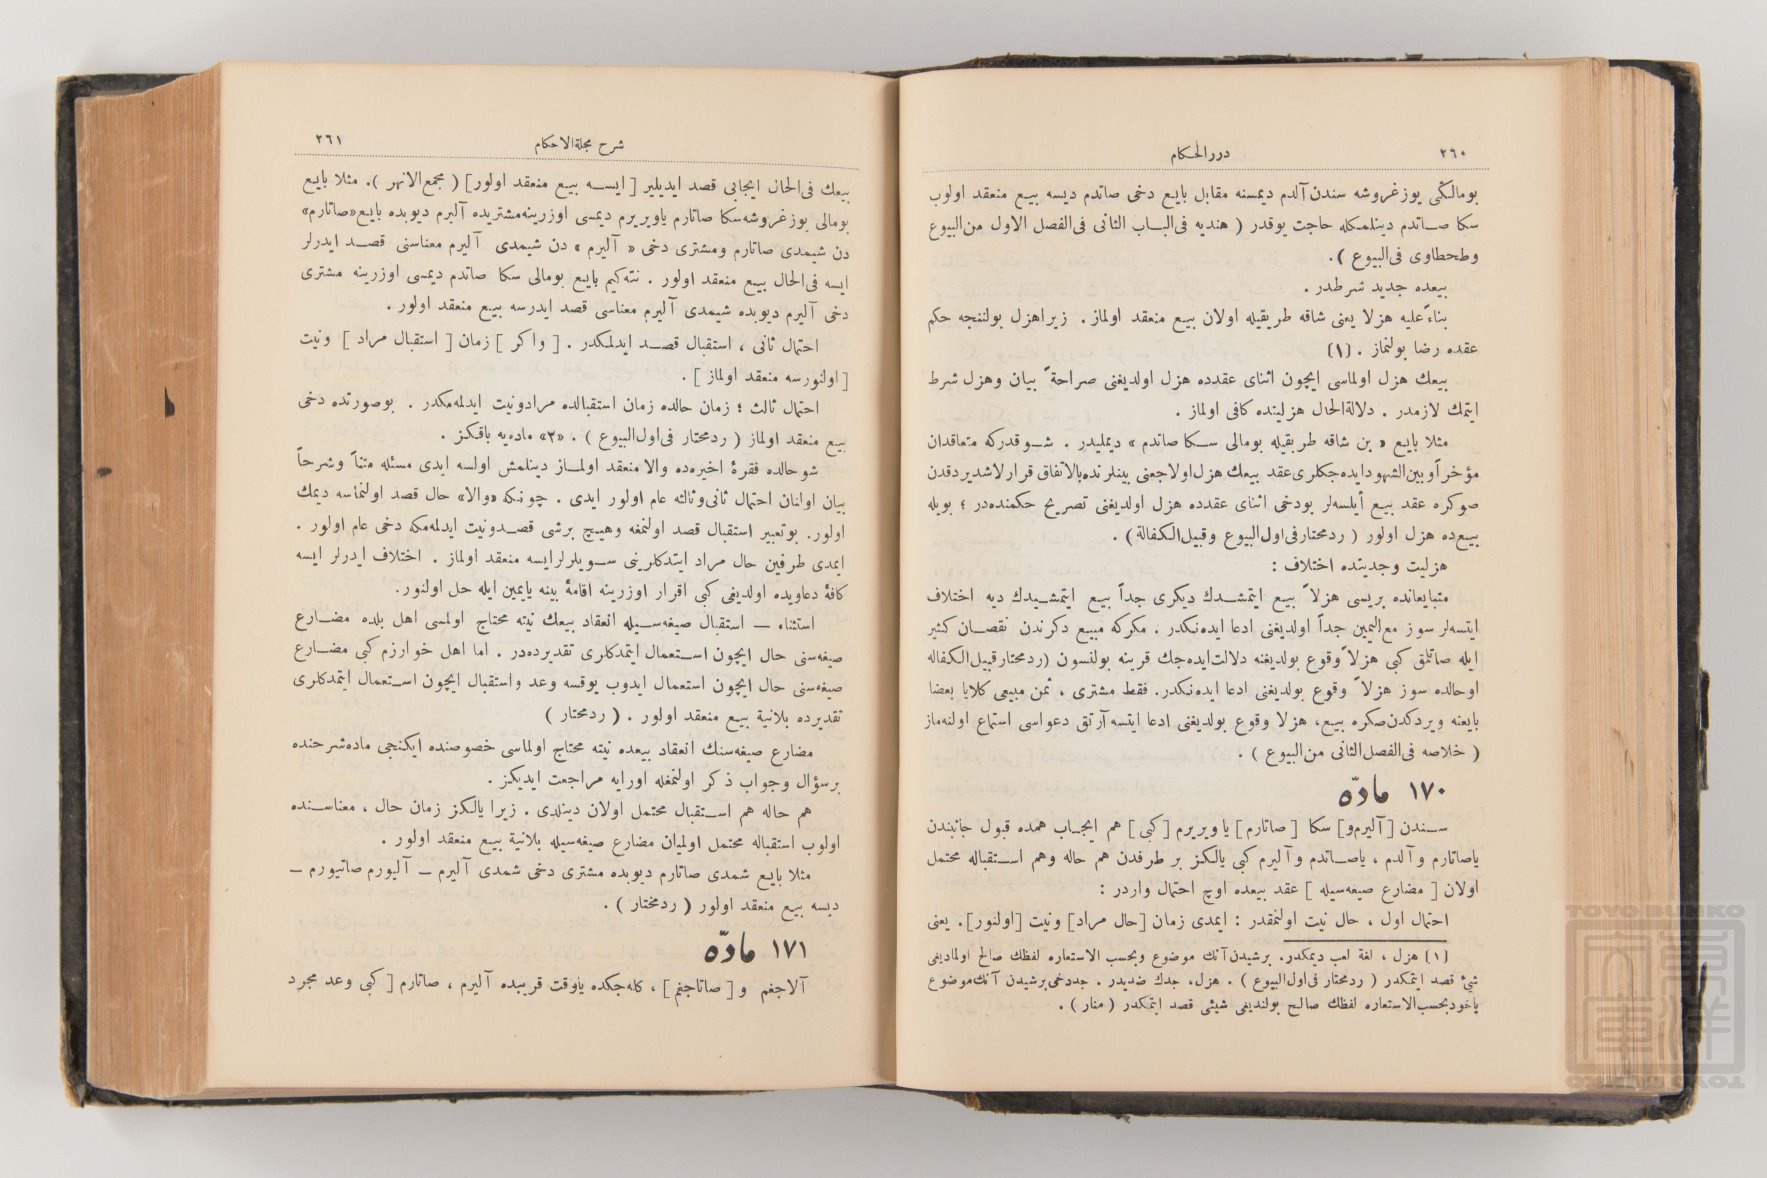 ٢٦٠
دررالحكام
بومالكی یوزغروشه سندن آلدم دیمسنه مقابل بایع دخی صاتدم دیسه بیع منعقد اولوب
سكا صاتدم دینلمكله حاجت یوقدر ( هندیه فی‌الباب الثانی فی‌الفصل الاول من‌البیوع
وطحطاوی فی‌البیوع ).
بیعده جدید شرطدر .
بناءً علیه هزلا یعنی شاقه طریقیله اولان بیع منعقد اولماز . زیراهزل بولننجه حكم
عقده رضا بولنماز . (١)
بیعك هزل اولماسی ایچون اثنای عقدده هزل اولدیغنی صراحةً بیان وهزل شرط
ایتمك لازمدر . دلالةالحال هزلیتده كافی اولماز .
مثلا بایع « بن شاقه طریقیله بومالی سكا صاتدم » دیملیدر . شوقدركه متعاقدان
مؤخراً وبین‌الشهود ایده‌جكلری عقد بیعك هزل اولاجغنی بینلرنده بالاتفاق قرارلاشدیردقدن
صوكره عقد بیع أیلسه‌لر بودخی اثنای عقدده هزل اولدیغنی تصریح حكمنده‌در ؛ بویله
بیع‌ده هزل اولور ( ردمحتار فی‌اول‌البیوع وقبیل‌الكفالة ) .
هزلیت وجدیتده اختلاف :
متبایعانده بریسی هزلاً بیع ایتمشدك دیكری جداً بیع ایتمشیدك دیه اختلاف
ایتسه‌لر سوز مع‌الیمین جداً اولدیغنی ادعا ایده‌نكدر . مكركه مبیع دكرندن نقصان كثیر
ایله صاتلق كبی هزلاً وقوع بولدیغنه دلالت‌ایده‌جك قرینه بولنسون (ردمحتارقبیل‌الكفاله
اوحالده سوز هزلاً وقوع بولدیغنی ادعا ایده‌نكدر. فقط مشتری ، ثمن مبیعی كلایا بعضا
بایعنه ویردكدن‌صكره بیع، هزلا وقوع بولدیغنی ادعا ایتسه آرتق دعواسی استماع اولنه‌ماز
( خلاصه فی‌الفصل‌الثانی من‌البیوع ) .
١٧٠ مادّه
سندن [ آلیرم‌و] سكا [ صاتارم ] یا ویریرم [كبی ] هم ایجاب همده قبول جانبندن
یاصاتارم و آلدم ، یاصاتدم و آلیرم كبی یالكز بر طرفدن هم حاله وهم استقباله محتمل
اولان [ مضارع صیغه‌سیله ] عقد بیعده اوچ احتمال واردر :
احتمال اول ، حال نیت اولنمقدر : ایمدی زمان [حال مراد] ونیت [اولنور]. یعنی
(١) هزل ، لغة لعب دیمكدر. برشیدن آنك موضوع وبحسب الاستعاره لفظك صالح اولمادیغی
شیئ قصد ایتمكدر ( ردمحتار فی‌اول‌البیوع ) . هزل، جدك ضدیدر . جددخی‌برشیدن آنك‌موضوع
یاخودبحسب‌الاستعاره لفظك صالح بولندیغی شیئی قصد ایتمكدر ( منار ) .
٢٦١
شرح مجلةالاحكام
بیعك فی‌الحال ایجابی قصد ایدیلیر [ ایسه بیع منعقد اولور] ( مجمع‌الانهر ). مثلا بایع
بومالی یوزغروشه‌سكا صاتارم یاویریرم دیمسی اوزرینه‌مشتریده آلیرم دیوبده بایع«صاتارم»
دن شیمدی صاتارم ومشتری دخی « آلیرم » دن شیمدی آلیرم معناسنی قصد ایدرلر
ایسه فی‌الحال بیع منعقد اولور . نته‌كیم بایع بومالی سكا صاتدم دیمسی اوزرینه مشتری
دخی آلیرم دیوبده شیمدی آلیرم معناسی قصد ایدرسه بیع منعقد اولور .
احتمال ثانی ، استقبال قصد ایدلمكدر . [ واكر ] زمان [ استقبال مراد ] ونیت
[ اولنورسه منعقد اولماز ] .
احتمال ثالث ؛ زمان حالده زمان استقبالده مرادونیت ایدلمه‌مكدر . بوصورتده دخی
بیع منعقد اولماز ( ردمحتار فی‌اول‌البیوع ) . «٢» ماده‌یه باقكز .
شوحالده فقرۀ اخیره‌ده والا منعقد اولماز دینلمش اولسه ایدی مسئله متناً وشرحاً
بیان اولنان احتمال ثانی‌وثالثه عام اولور ایدی . چونكه «والا» حال قصد اولنمأسه دیمك
اولور. بوتعبیر استقبال قصد اولنمغه وهیچ برشی قصدونیت ایدلمه‌مكه دخی عام اولور .
ایمدی طرفین حال مراد ایتدكلرینی سویلرلرایسه منعقد اولماز . اختلاف ایدرلر ایسه
كافۀ دعاویده اولدیغی كبی اقرار اوزرینه اقامۀ بینه یایمین ایله حل اولنور.
استثناء — استقبال صیغه‌سیله انعقاد بیعك نیته محتاج اولمسی اهل بلده مضارع
صیغه‌سنی حال ایچون استعمال ایتمدكلری تقدیرده‌در . اما اهل خوارزم كبی مضارع
صیغه‌سنی حال ایچون استعمال ایدوب یوقسه وعد واستقبال ایچون استعمال ایتمدكلری
تقدیرده بلانیة بیع منعقد اولور . ( ردمحتار )
مضارع صیغه‌سنك انعقاد بیعده نیته محتاج اولماسی خصوصنده ایكنجی ماده‌شرحنده
برسؤال وجواب ذكر اولنمغله اورایه مراجعت ایدیكز .
هم حاله هم استقبال محتمل اولان دینلدی . زیرا یالكز زمان حال ، معناسنده
اولوب استقباله محتمل اولمیان مضارع صیغه‌سیله بلانیة بیع منعقد اولور .
مثلا بایع شمدی صاتارم دیوبده مشتری دخی شمدی آلیرم ــ آلیورم صاتیورم ــ
دیسه بیع منعقد اولور ( ردمختار ) .
١٧١ مادّه
آلاجغم و [ صاتاجغم ] ، كله‌جكده یاوقت قریبده آلیرم ، صاتارم [ كبی وعد مجرد
TOYO BUNKO
TOYO BUNKO